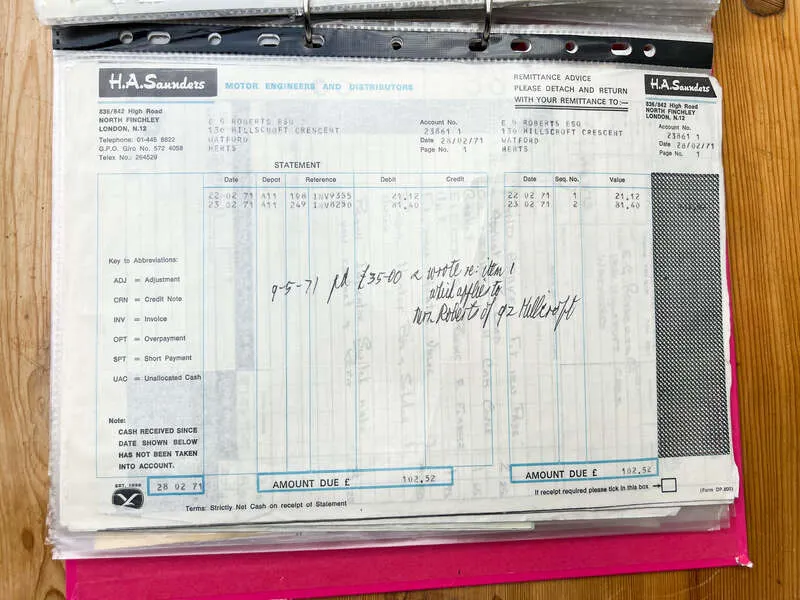 H.A.Saunders
MOTOR ENGINEERS AND DISTRIBUTORS
836/842 High Road
NORTH FINCHLEY
LONDON, N.12
Telephone: 01-445 8822
G.P.O. Giro No. 572 4058
Telex No.: 264529
E G ROBERTS ESQ
130 HILLSCROFT CRESCENT
WATFORD
HERTS
Account No.
23861 1
Date 28/02/71
Page No. 1
REMITTANCE ADVICE
PLEASE DETACH AND RETURN
WITH YOUR REMITTANCE TO:—
E G ROBERTS ESQ
130 HILLSCROFT CRESCENT
WATFORD
HERTS
H.A.Saunders
836/842 High Road
NORTH FINCHLEY
LONDON, N.12
Account No.
23861 1
Date 28/02/71
Page No. 1
STATEMENT
Date Depot Reference Debit Credit
22 02 71 A11 198 INV9355 21.12
23 02 71 A11 249 INV8230 81.40
Date Seq. No. Value
22 02 71 1 21.12
23 02 71 2 81.40
Key to Abbreviations:
ADJ = Adjustment
CRN = Credit Note
INV = Invoice
OPT = Overpayment
SPT = Short Payment
UAC = Unallocated Cash
9-5-71 pd £35-00 & wrote re: item 1
which applies to
Mr. Roberts of 92 Hillcroft
Note:
CASH RECEIVED SINCE
DATE SHOWN BELOW
HAS NOT BEEN TAKEN
INTO ACCOUNT.
28 02 71
AMOUNT DUE £ 102.52
AMOUNT DUE £ 102.52
Terms: Strictly Net Cash on receipt of Statement
If receipt required please tick in this box